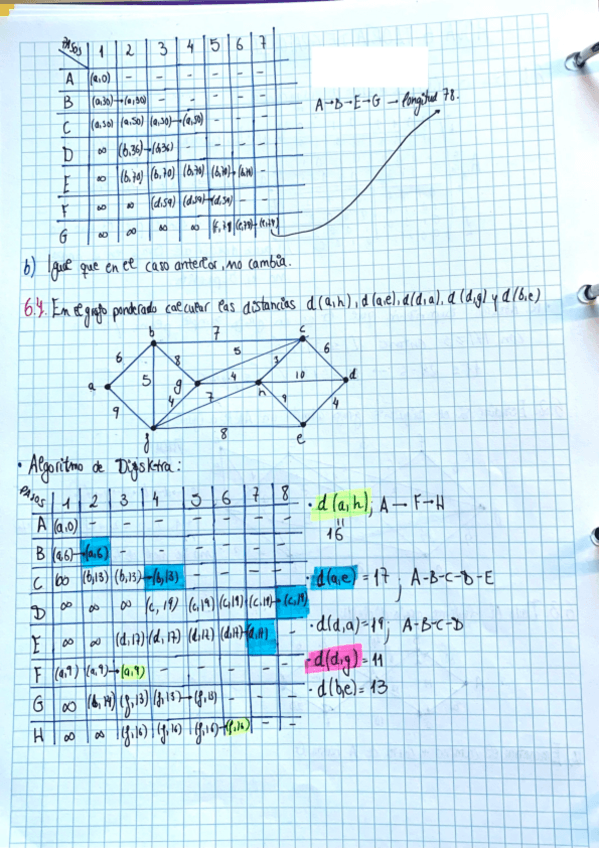 PASOS 1 2 3 4 5 6 7
A (a,0) - - - - - -
B (a,30)→(a,30) - - - - -
C (a,50) (a,50) (a,50)→(a,50) - - -
D ∞ (b,36)→(b,36) - - - -
E ∞ (b,70) (b,70) (b,70) (b,70)→(b,70) -
F ∞ ∞ (d,59) (d,59)→(d,59) - -
G ∞ ∞ ∞ ∞
A→B→E→G → longitud 78.
b) Igual que en el caso anterior, no cambia.
6.4. En el grafo ponderado calcular las distancias d(a,h), d(a,e), d(d,a), d(d,g) y d(b,e)
b 7 c
6 8 5 3 6
a 5 g 4 h 10 d
9 4 7 9 4
f 8 e
• Algoritmo de Dijsktra:
PASOS 1 2 3 4 5 6 7 8
A (a,0) - - - - - - -
B (a,6)→(a,6) - - - - - -
C ∞ (b,13) (b,13)→(b,13) - - - -
D ∞ ∞ ∞ (c,19) (c,19) (c,19) (c,19)→(c,19)
E ∞ ∞ (d,17) (d,17) (d,17) (d,17)→(d,17) -
F (a,9) (a,9)→(a,9) - - - - -
G ∞ (b,14) (f,13) (f,13)→(f,13) - - -
H ∞ ∞ (f,16) (f,16) (f,16)→(f,16) - -
· d(a,h); A - F→H
=
16
· d(a,e) = 17 ; A-B-C-D-E
· d(d,a)=19; A-B-C-D
· d(d,g) = 11
· d(b,e)= 13